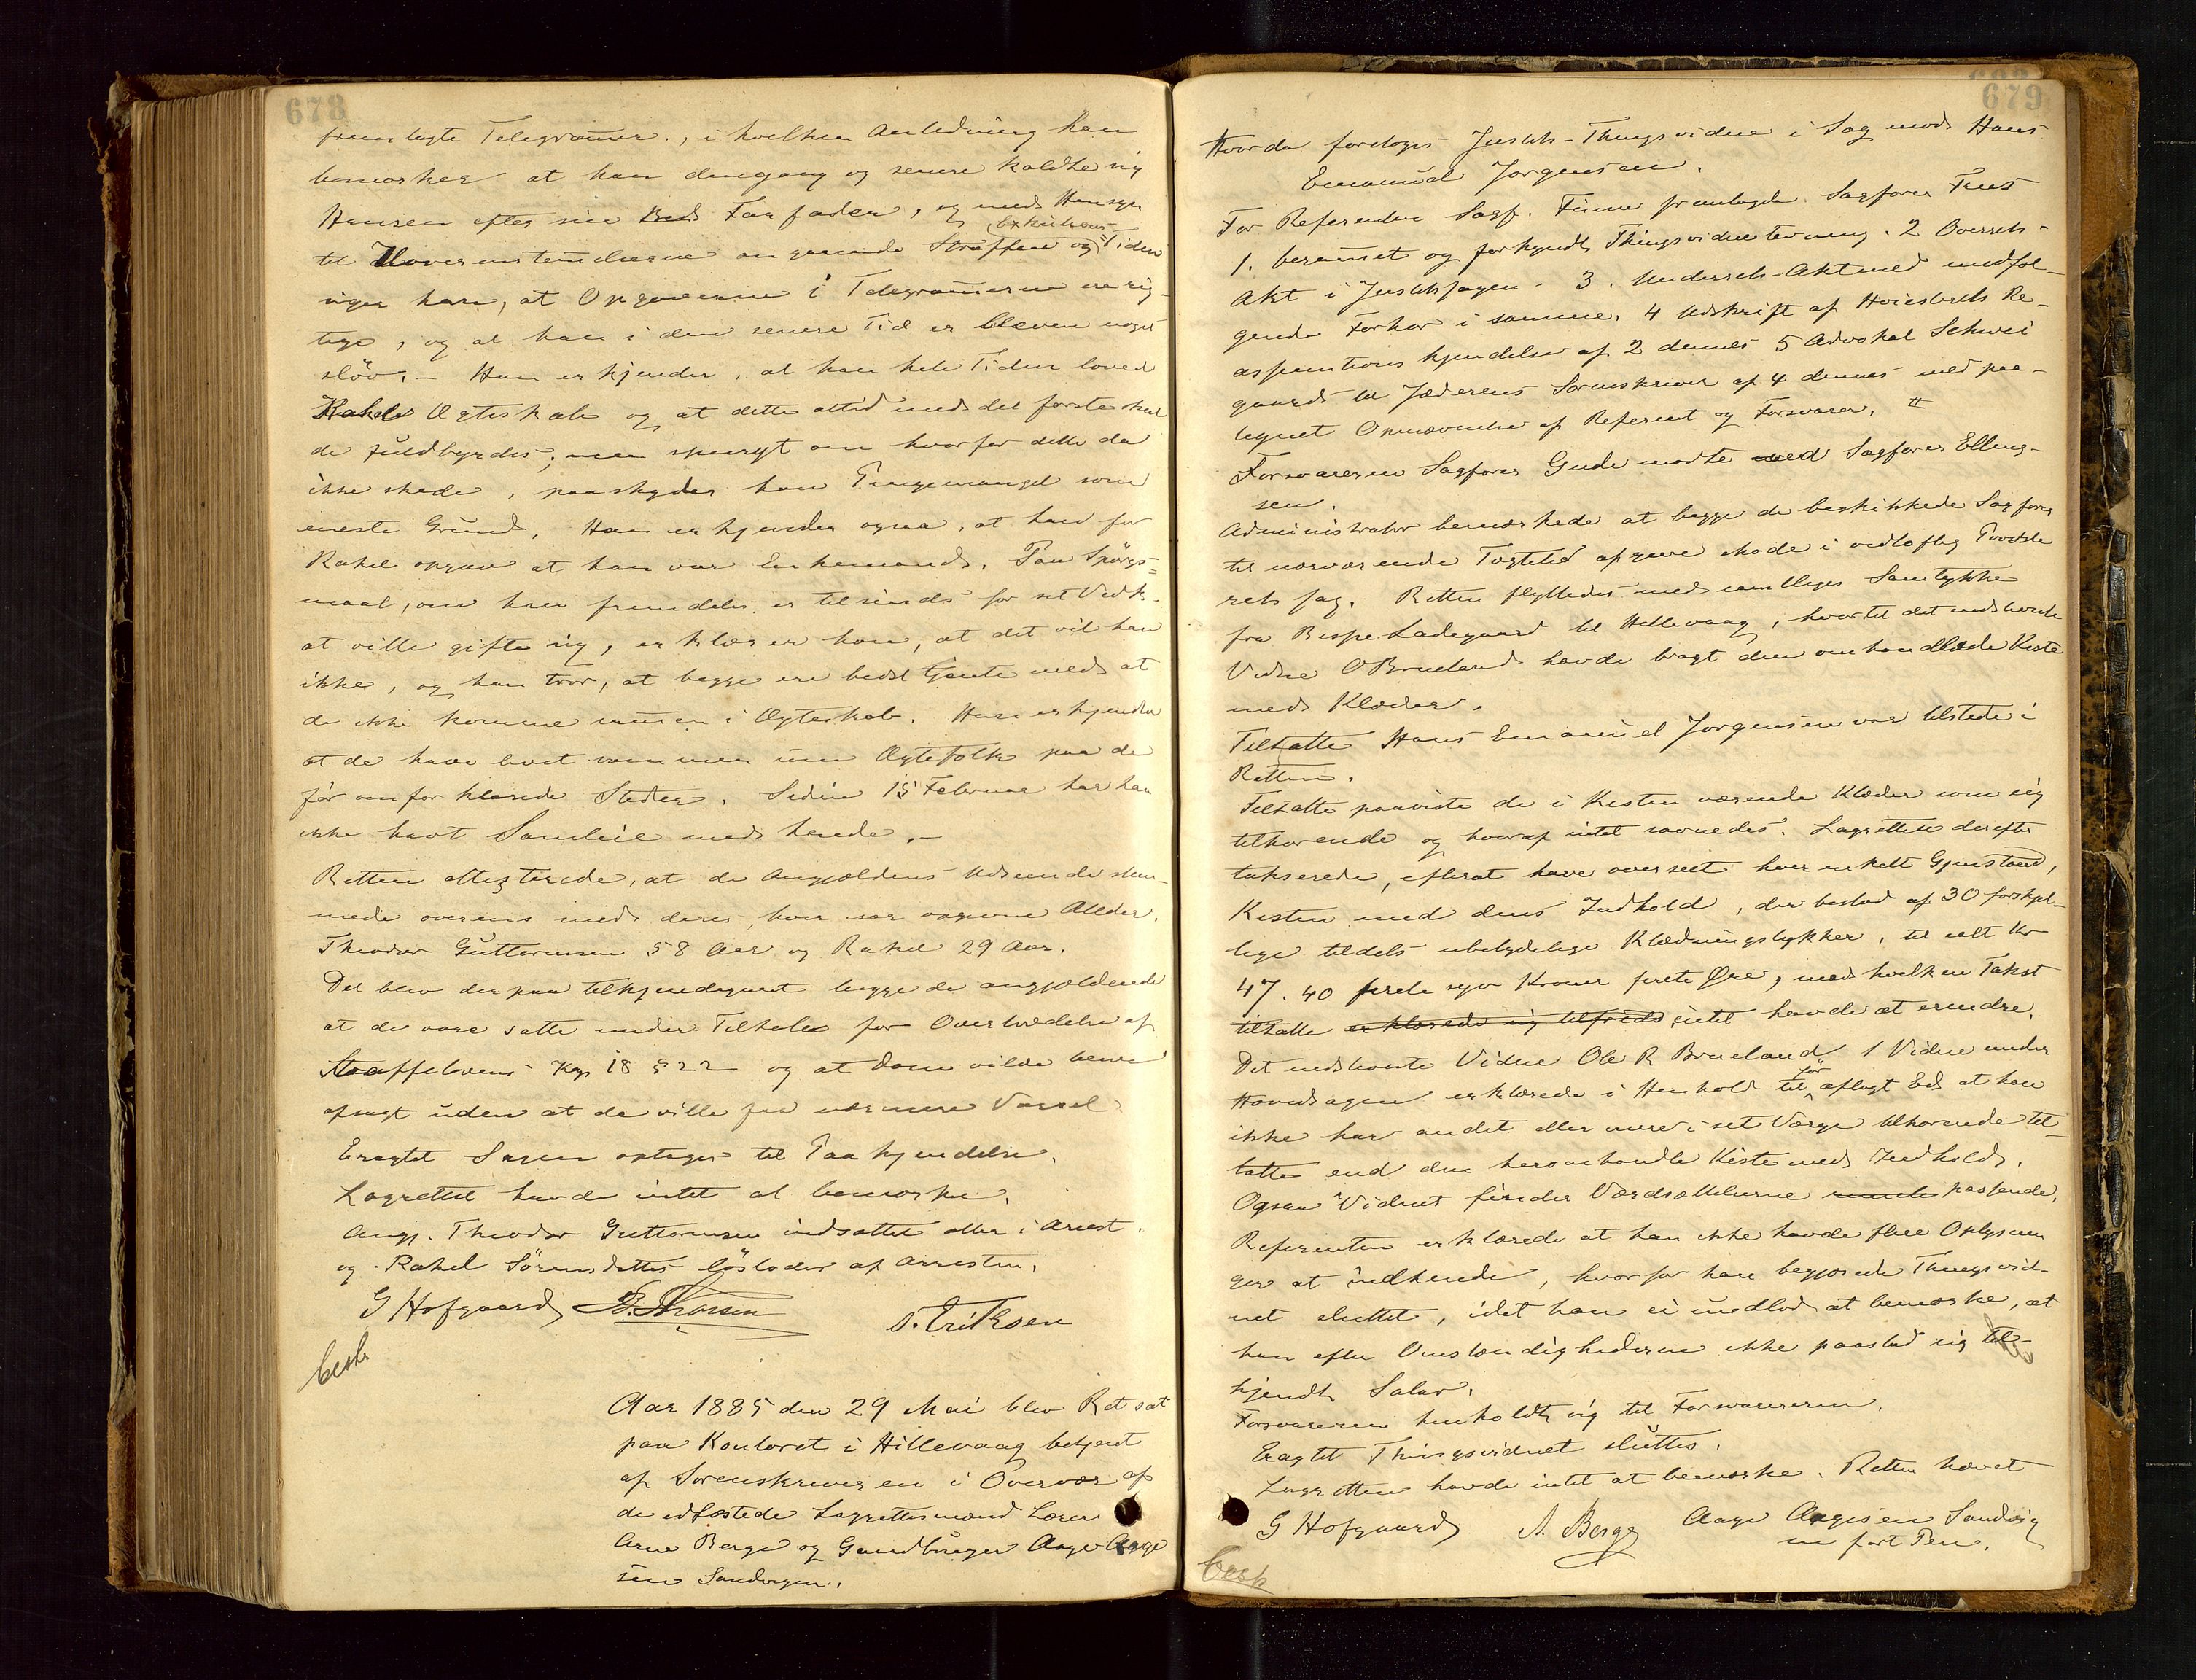 678
fremlagte Telegrammer., i hvilken Anledning han
bemærker at han dengang og senere kaldte sig
Hansen efter sin Farfader, og med Hensyn
til Uoverenstemelserne angaaende Straffene og Tiden
siger han, at Opgaverne i Telegrammerne ere rig-
tige, og at han i den senere Tid er bleven noget
sløv. – Han erkjender, at han hele Tiden loved
Rakel Ægteskab og at dette altid med det første skul
de fuldbyrdes; men spurgt om hvorfor dette da
ikke skede, paaskyder han Pengemangel som
eneste Grund. Han erkjender ogsaa, at han for
Rakel opgav at han var Enkemand. Paa Spörgs=
maal, om han fremdeles er tilsinds for sit Vedk.
at ville gifte sig, erklærer han, at det vil han
ikke, og han tror, at begge ere bedst tjente med at
de ikke komme sammen i Ægteskab. Han erkjender
at de have levet sammen som Ægtefolk paa de
før omforklarede Steder. Siden 15 Februar har han
ikke havt Samleie med hende. –
Retten attesterede, at de Angjældendes Udseende stem-
mede overens med deres, hver især opgivne Alder,
Theodor Guttormsen 58 Aar og Rakel 29 Aar.
Det blev derpaa tilkjendegivet begge de angjældende
at de vare satte under Tiltale for Overtrædelse af
Straffelovens Kap 18 § 22 og at Dom vilde blive
afsagt uden at de ville faa nærmere Varsel.
Eragtet Sagen optages til Paakjendelse.
Lagrettet havde intet at bemærke.
Angj. Theodor Guttormsen indsattes atter i Arrest.
og Rakel Sörensdatter løslades af Arresten.
G Hofgaard B. Thorsen
S. Eriksen
besk
Aar 1885 den 29 Mai blev Ret sat
paa Kontoret i Hillevaag betjent
af Sorenskriveren i Overvær af
de edfæstede Lagrettesmænd Lærer
Arne Berge og Gaardbruger Aage Aage
sen Sandvigen.
679
Hvorda foretoges Justits-Thingsvidne i Sag mod Hans
Emanuel Jørgensen.
For Referenten Sagf. Finne fremlagde Sagfører
1. berammet og forkyndt Thingsvidnestevning. 2 Overrets-
Akt i Justitssagen. 3. Underrets-Akt med medføl-
gende Forhør i samme. 4 Udskrift af Høiesterets Re-
assumtions kjendelse af 2 dennes 5 Advokat Schwei
gaards til Jæderens Sorenskriver af 4 dennes med paa-
tegnet Opnævnelse af Referent og Forsvarer.
Forsvareren Sagfører Gude mødte ved Sagfører Elling-
sen.
Administrator bemærkede at begge de beskikkede Sagfører
til nærværende Tægtetid afgive Møde i vedløftig Provste
rets sag. Retten flyttedes med samtliges Samtykke
fra Bispeladegaard til Hillevaag, hvortil det indstevnte
Vidne O Brueland havde bragt den omhandlede Kiste
med Klæder.
Tiltalte Hans Emanuel Jørgensen var tilstede i
Retten.
Tiltalte paaviste de i Kisten værende Klæder som sig
tilhørende og hvoraf intet savnedes. Lagrettet derefter
takserede, efterat have overseet hver enkelt Gjenstand,
Kisten med dens Indhold, der bestod af 30 forskjel-
lige tildels ubetydelige Klædningsstykker, til ialt Kr
47. 40 firti syv Kroner firti Øre, med hvilken Takst
tiltalte erklærede sig tilfreds intet havde at erindre.
Det indstevnte Vidne Ole R Brueland 1 Vidne under
Hovedsagen erklærede i Henhold til før aflagt Ed at han
ikke har andet eller mere i sit Værge tilhørende til-
talte end den heromhandle Kiste med Indhold.
Ogsaa Vidnet finder Værdsættelserne passende.
Referenten erklærede at han ikke havde flere Oplysnin
ger at indhente, hvorfor han begjærede Thingsvid-
net sluttet, idet han ei undlod at bemærke, at
han efter Omstændighederne ikke paastod sig til-
kjendt Salær.
Forsvareren henholdt sig til Forsvareren.
Eragtet Thingsvidnet sluttes.
Lagretten havde intet at bemærke. Retten hævet
G Hofgaard A. Berge Aage Aagesen Sandvig
m ført Pen.
besk